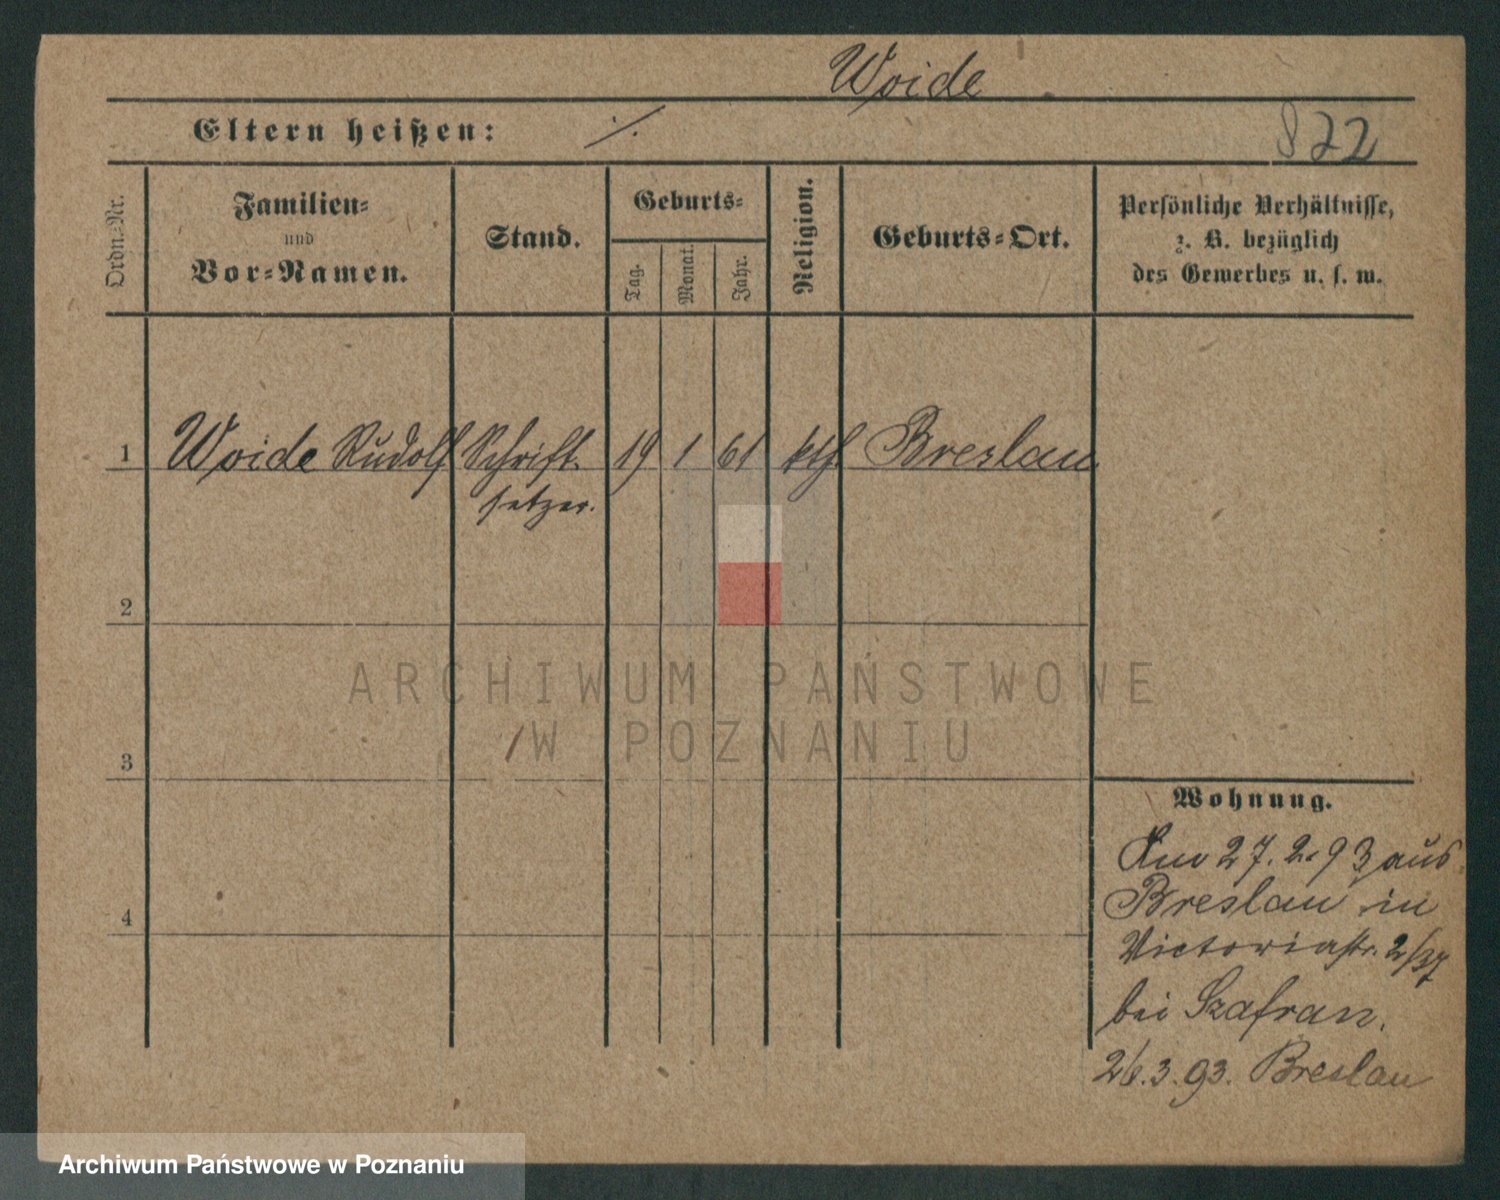 Woide
Eltern heißen: ·/.
822
Ordn.-Nr.
Familien-
und
Vor-Namen.
Stand.
Geburts-
Tag.
Monat.
Jahr.
Religion.
Geburts-Ort.
Persönliche Verhältnisse,
z. B. bezüglich
des Gewerbes u. s. w.
1 Woide Rudolf Schrift- 19 1 61 kth. Breslau
setzer.
2
ARCHIWUM PAŃSTWOWE
W POZNANIU
3
Wohnung.
4
27. 2. 93 aus
Breslau in
Victoriastr. 2/37
bei Szafran.
26.3.93. Breslau
Archiwum Państwowe w Poznaniu